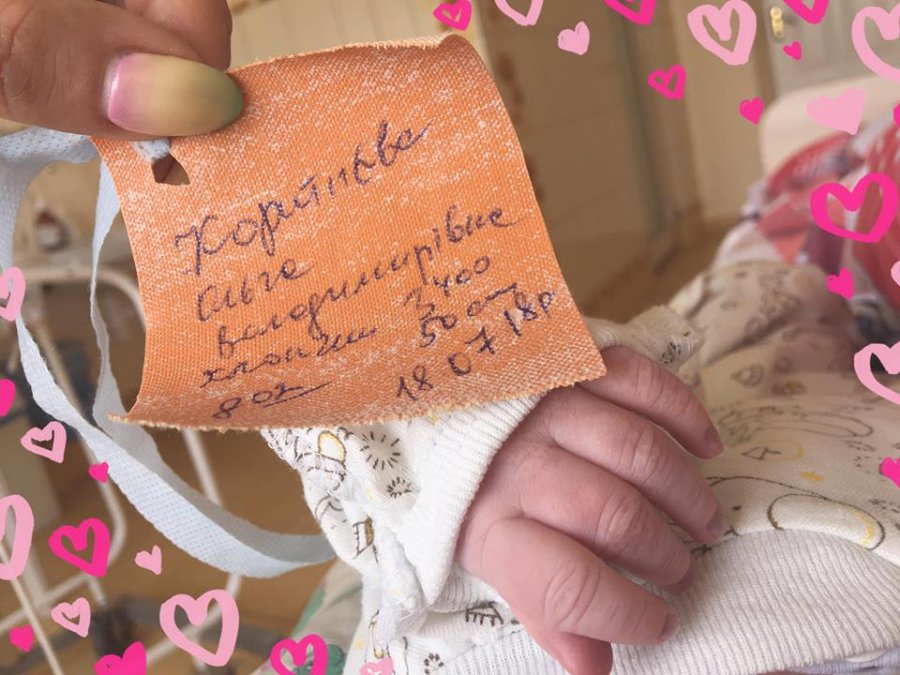 Ольга
володимирівна
хлопчик 3400
50 см
8 02 18 07 18р